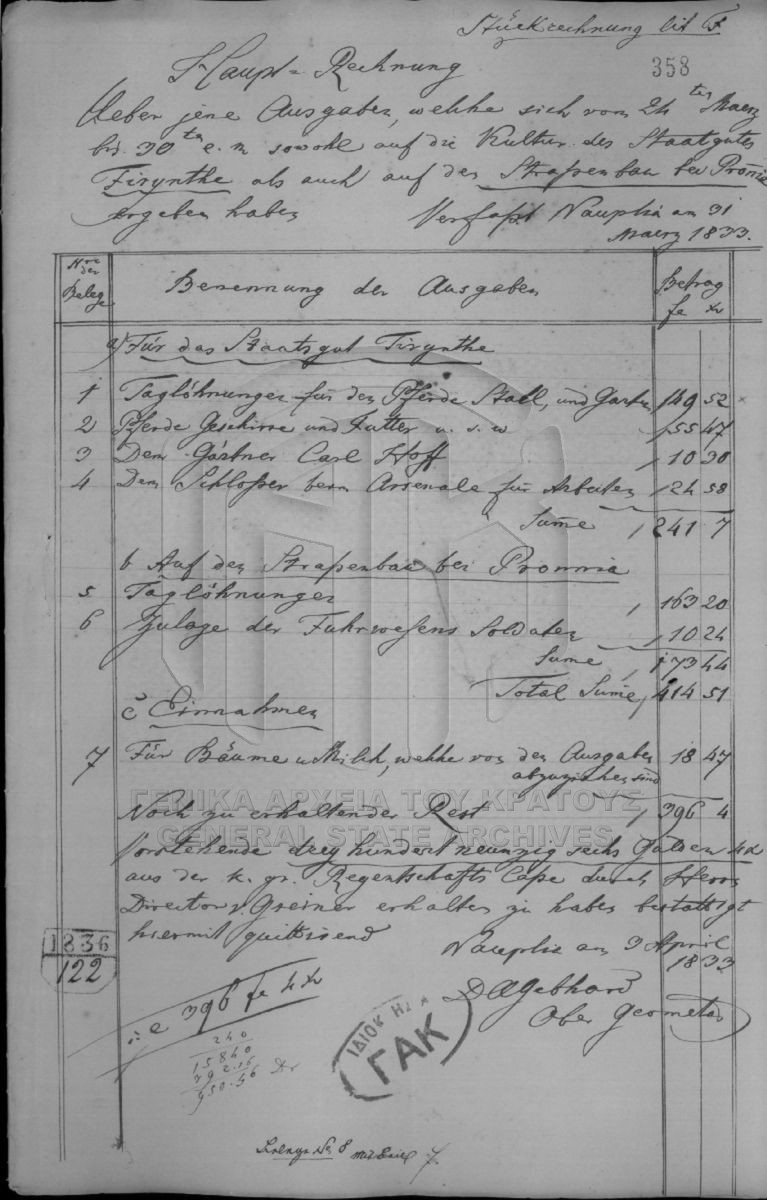 Stückrechnung lit F
358
Haupt-Rechnung
Ueber jene Ausgaben, welche sich vom 24ten Maerz
bis 30ten e. m sowohl auf die Kultur des Staatgutes
Tirynthe als auch auf den Straßenbau bei Pronia
ergeben haben Verfaßt Nauplia am 31
Maerz 1833.
Nro der Belege
Benennung der Ausgaben
Betrag
fe xr
a) Für das Staatsgut Tirynthe
1 Taglöhnungen für den Pferde Stall, und Garten 149 52
2 Pferde Geschirre und Futter u. s. w 55 47
3 Dem Gärtner Carl Hoff 10 30
4 Dem Schloßer beim Arsenale für Arbeiten 24 58
Sume 241 7
b Auf den Straßenbau bei Pronnia
5 Taglöhnungen 163 20
6 Zulage der Fuhrwesens Soldaten 10 24
Sume 173 44
Total Sume 414 51
c Einnahmen
7 Für Bäume u Milch, welche von den Ausgaben 18 47
abzuziehen sind
Noch zu erhaltender Rest 396 4
ΓΕΝΙΚΑ ΑΡΧΕΙΑ ΤΟΥ ΚΡΑΤΟΥΣ
GENERAL STATE ARCHIVES
Vorstehende drey hundert neunzig sechs Gulden 4x
aus der k. gr. Regentschafts Casse durch Herrn
Director v. Greiner erhalten zu haben bestättigt
hiermit quittirend
Nauplia am 3 April
1833
1836
122
396 fe 4 xr
D A Gebhard
Ober Geometer
240
15840
792.16
950.56 Dr
ΓΑΚ
Beleg No 8